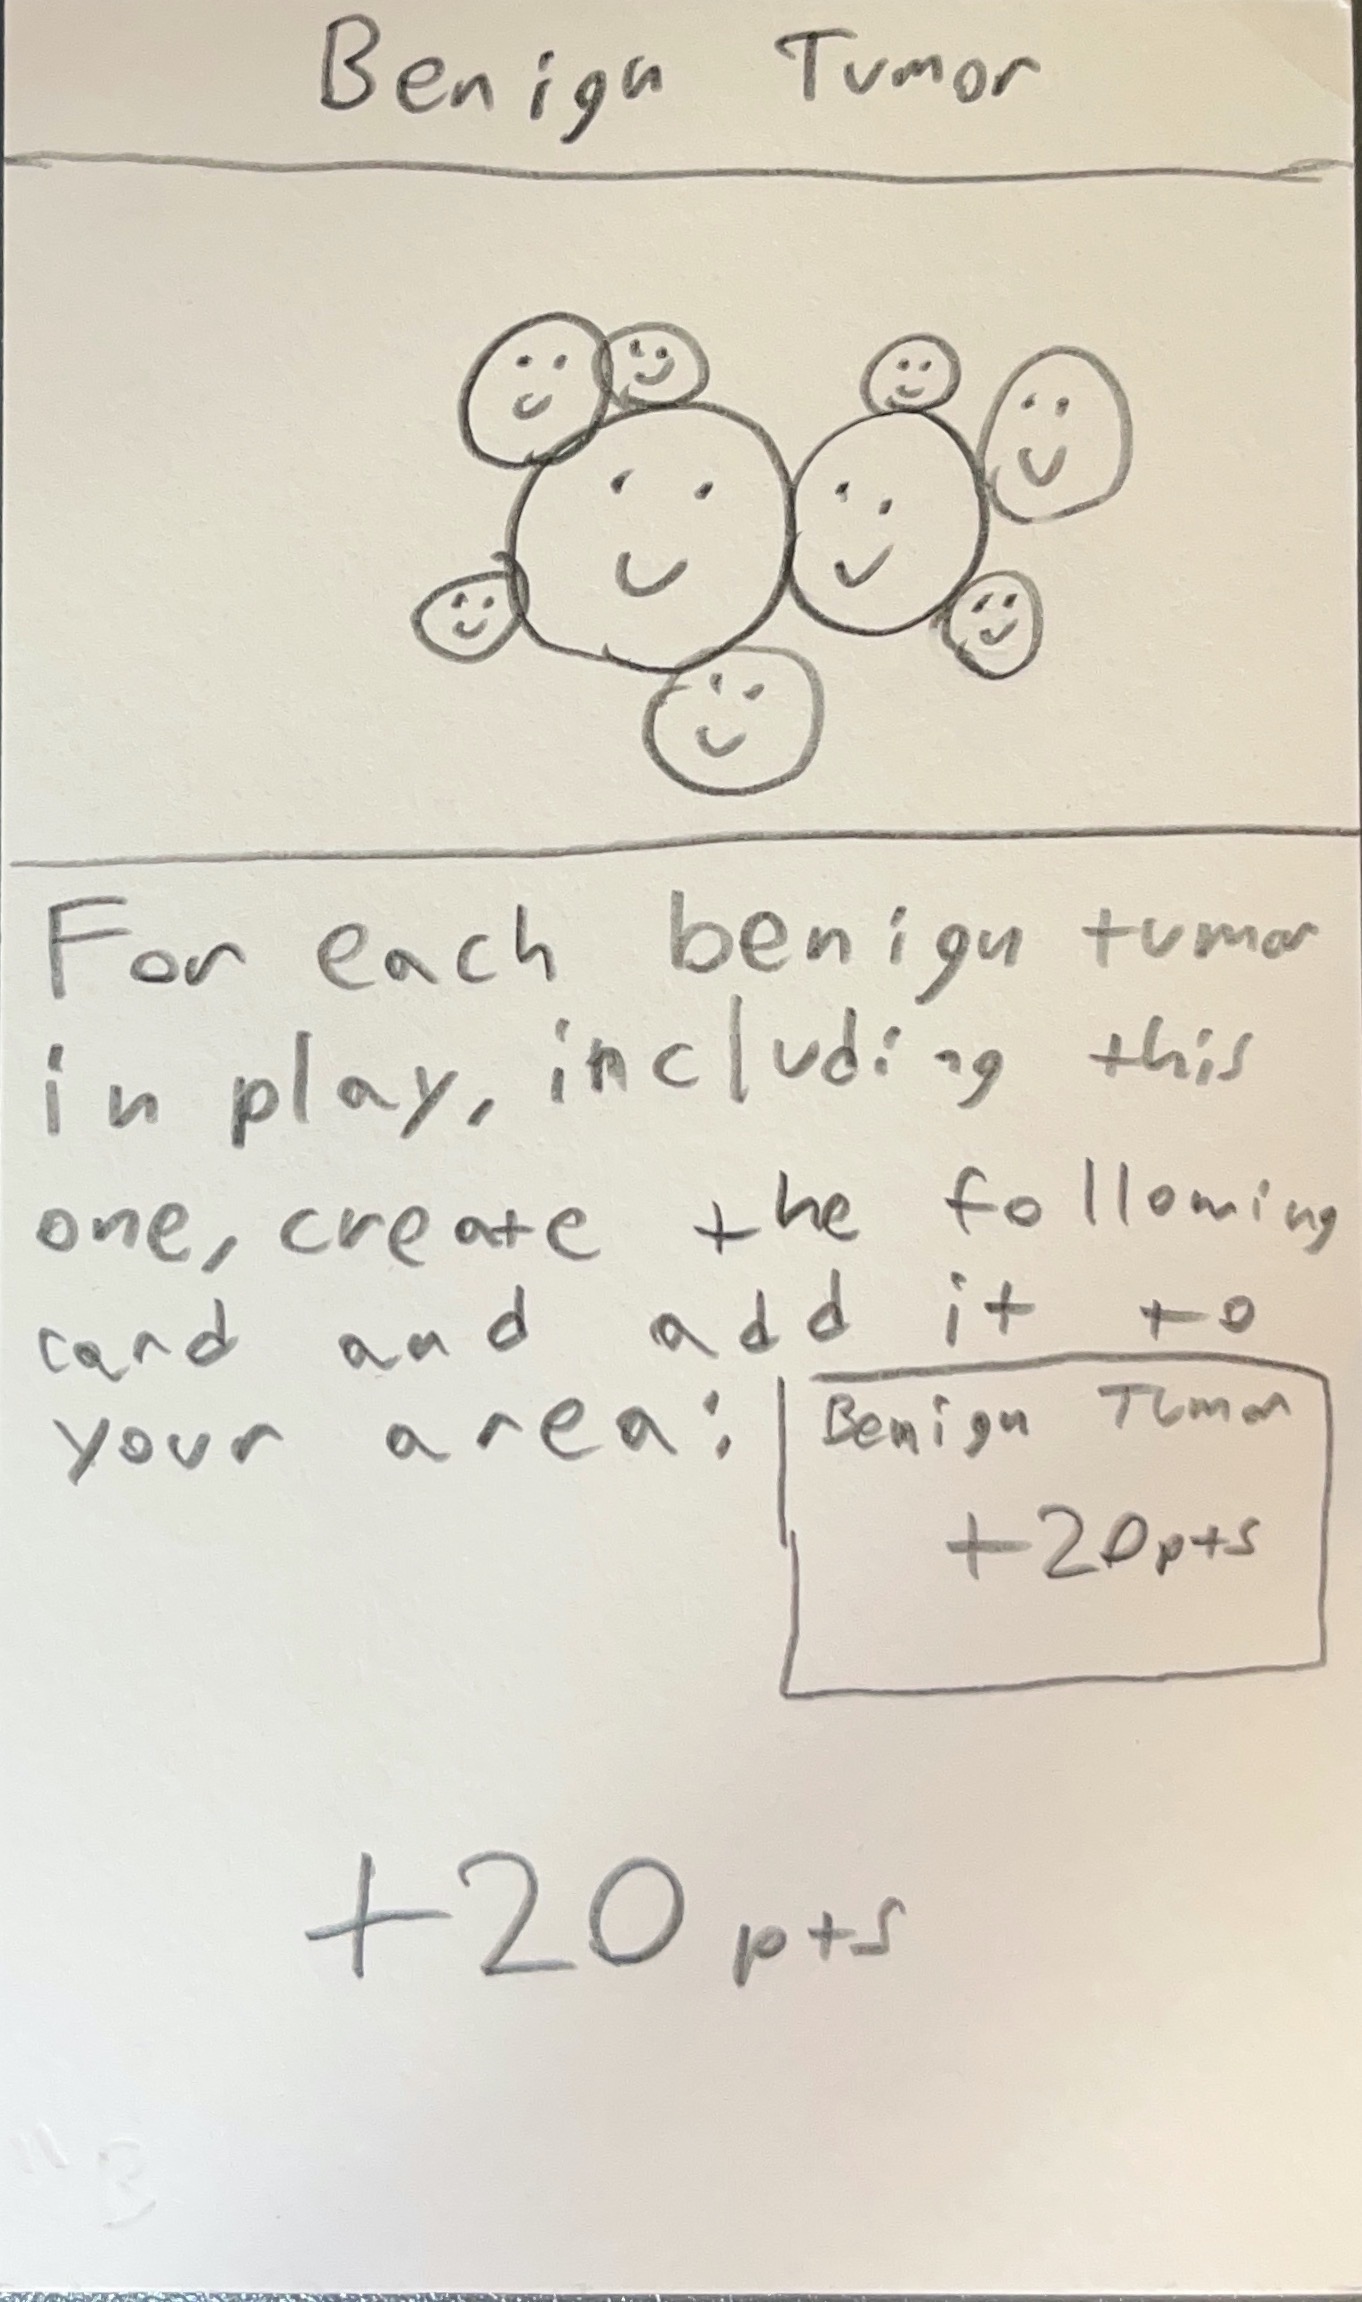 Benign Tumor
For each benign tumor
in play, including this
one, create the following
card and add it to
your area:
Benign Tumor
+20pts
+20 pts